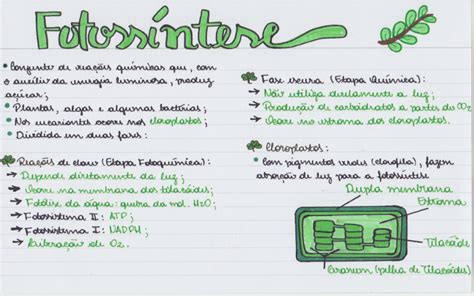 Fotossíntese
• Conjunto de reações químicas que, com
o auxílio da energia luminosa, produz
açúcar;
• Plantas, algas e algumas bactérias;
• Nos eucariontes ocorre nos cloroplastos;
• Dividida em duas fases:
Reações de claro (Etapa Fotoquímica):
→ Depende diretamente da luz;
→ Ocorre na membrana dos tilacóides;
→ Fotólise da água: quebra da mol. H2O;
→ Fotossistema II: ATP;
→ Fotossistema I: NADPH;
→ Liberação de O2.
Fase escura (Etapa Química):
→ Não utiliza diretamente a luz;
→ Produção de carboidratos a partir do CO2
→ Ocorre no estroma dos cloroplastos.
Cloroplastos:
• Com pigmentos verdes (clorofila), fazem
absorção de luz para a fotossíntese
Dupla membrana
Estroma
Tilacóide
Granum (pilha de Tilacóides)